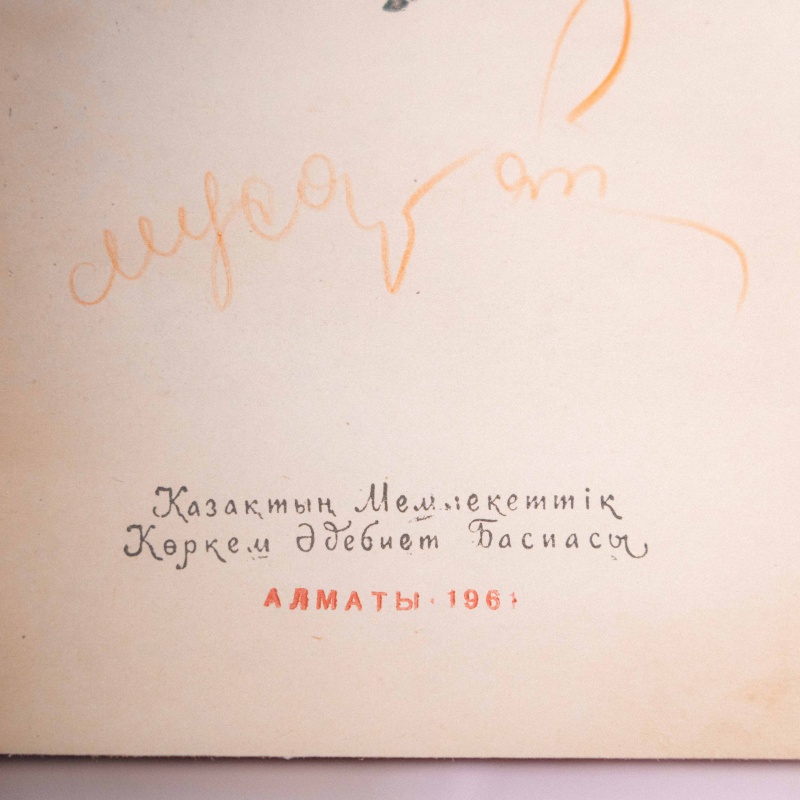 Қазақтың Мемлекеттік
Көркем Әдебиет Баспасы
АЛМАТЫ · 1961